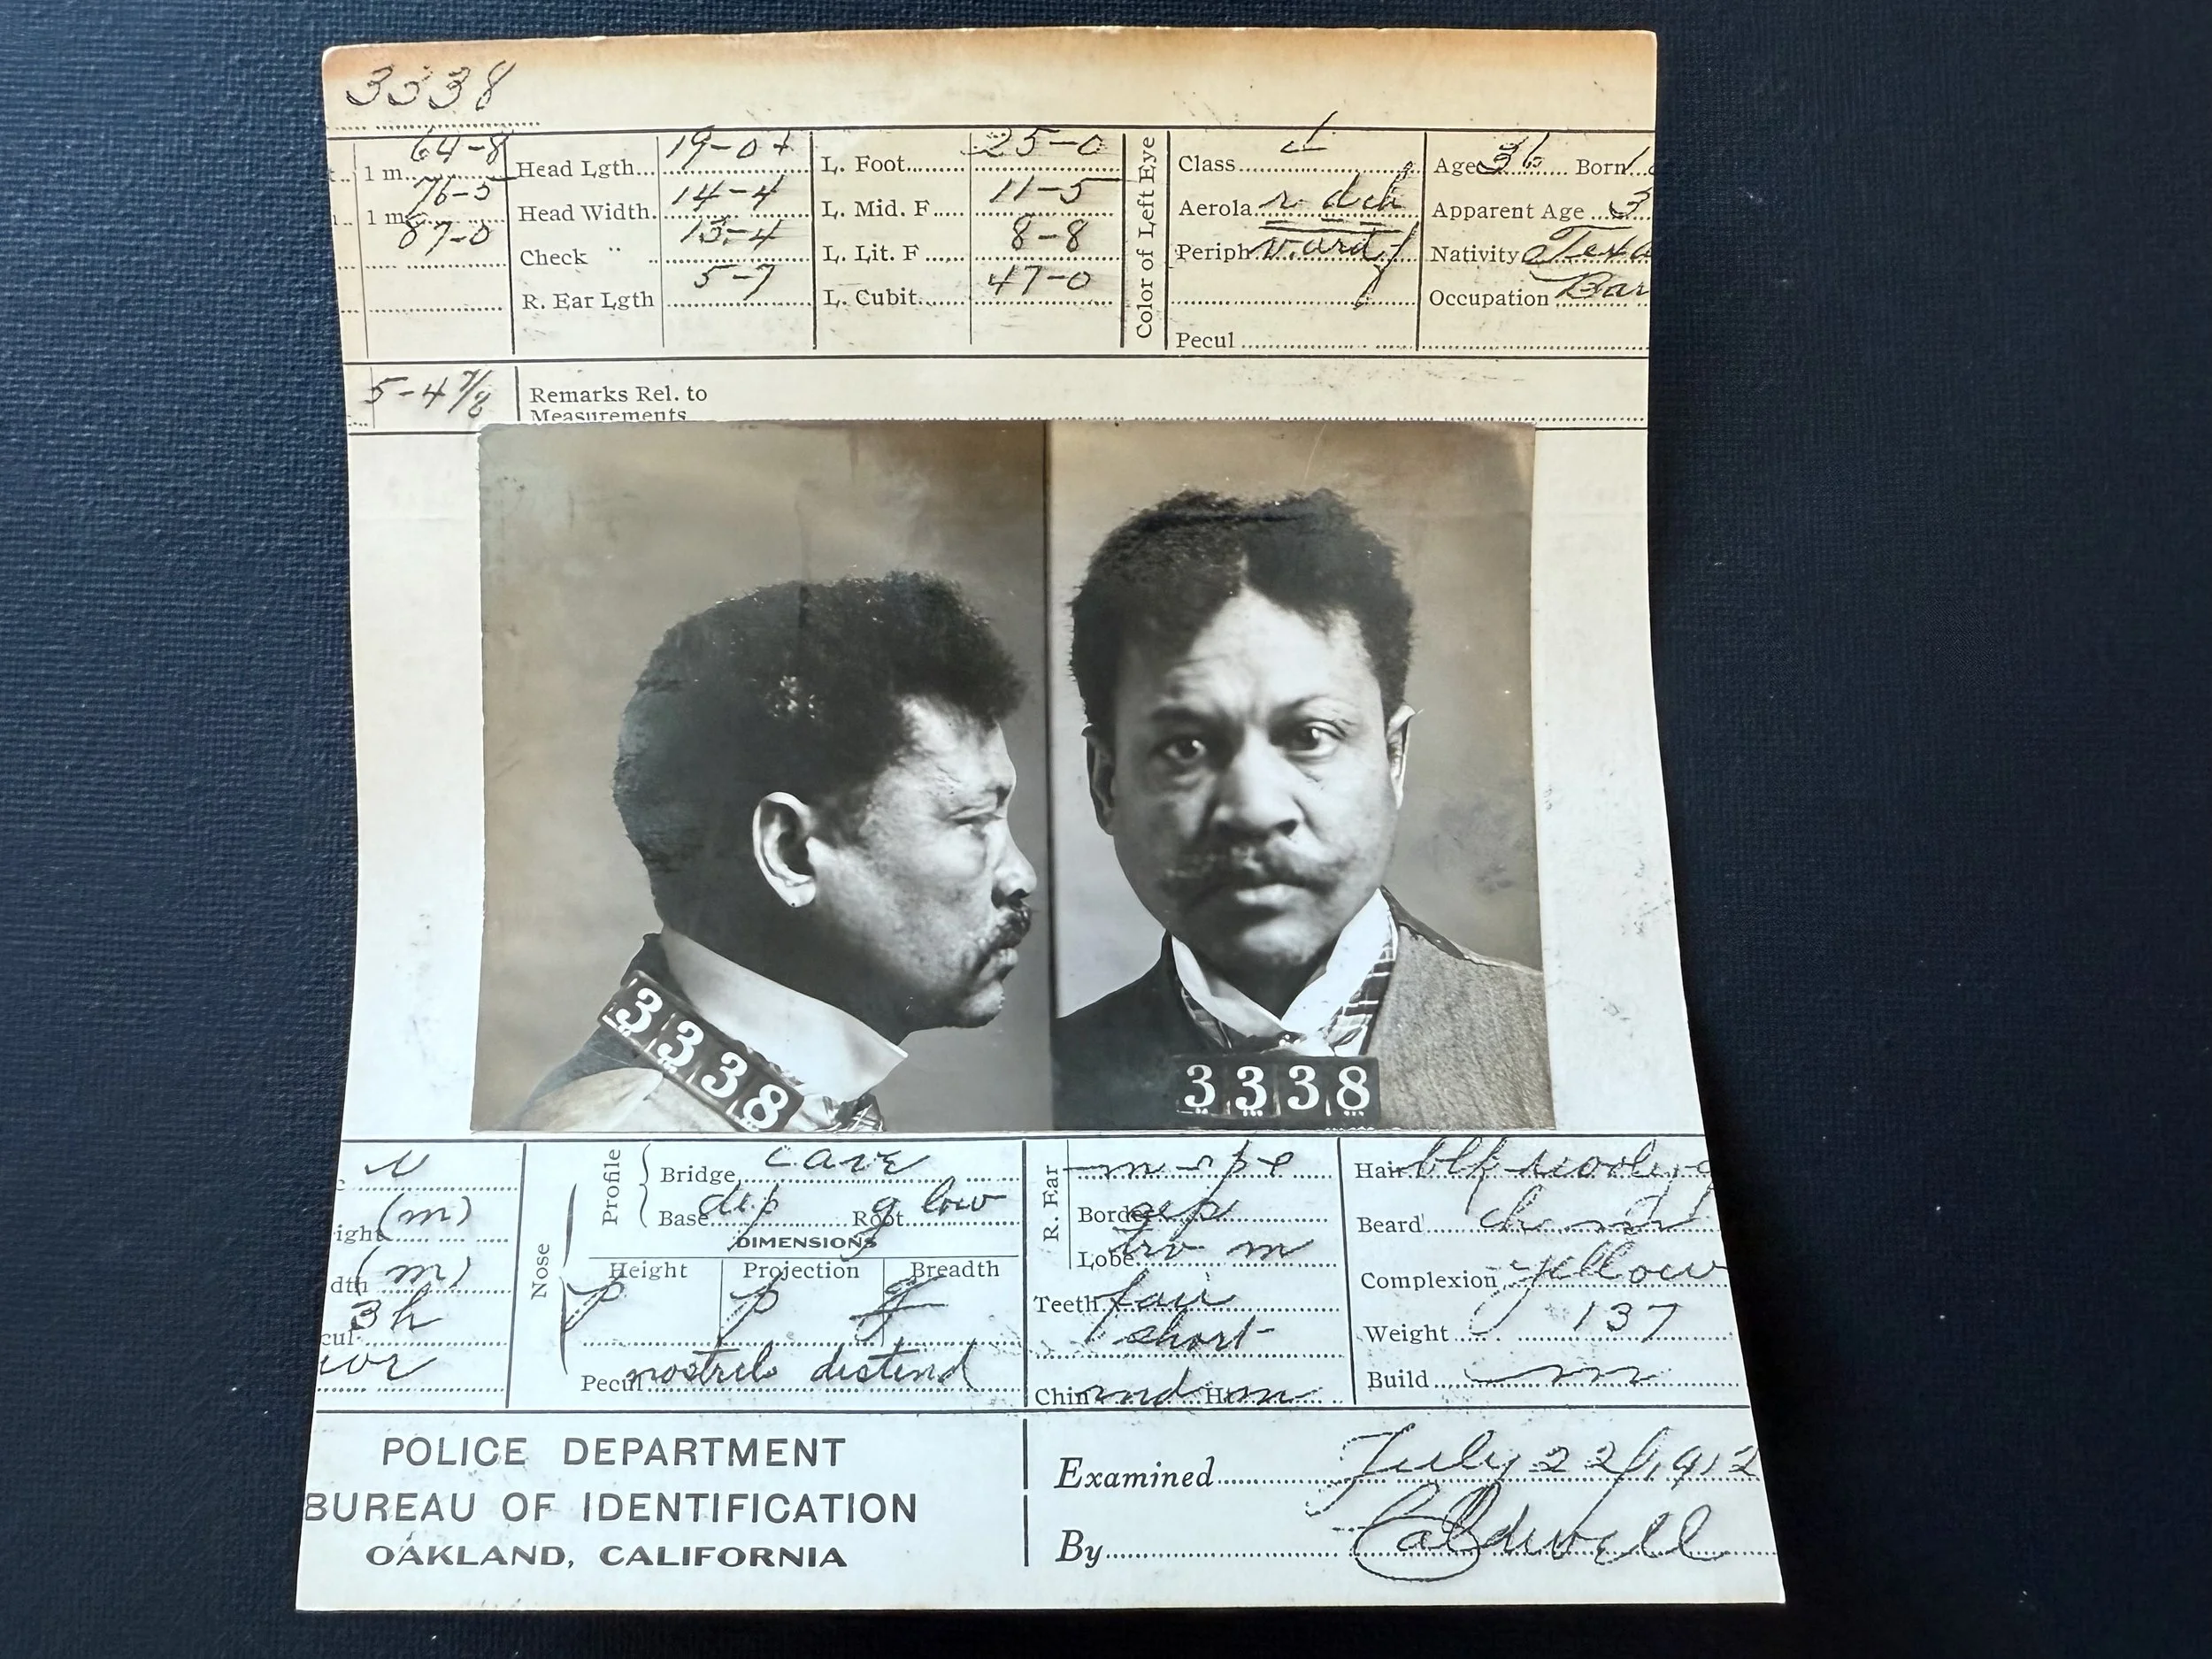 3338
64-8 Head Lgth. 19-0+ L. Foot 25-0 Class Age 36 Born
1 m. 76-5 Head Width. 14-4 L. Mid. F 11-5 Aerola r dch Apparent Age 3
1 m. 87-0 Check " 13-4 L. Lit. F 8-8 Periph Nativity Texa
R. Ear Lgth 5-7 L. Cubit 47-0 Occupation Bar
Color of Left Eye
Pecul
5-4 7/8 Remarks Rel. to
Measurements
3338
3338
Nose Profile Bridge cave R. Ear Hair blk
ight (m) Base dep Root g low Border Beard
DIMENSIONS
dth (m) Height Projection Breadth Lobe m Complexion yellow
cul 3h p p g Teeth fair Weight 137
short
Pecul nostrils distend Chin md H m Build m
POLICE DEPARTMENT
BUREAU OF IDENTIFICATION
OAKLAND, CALIFORNIA
Examined July 22/1912
By Caldwell